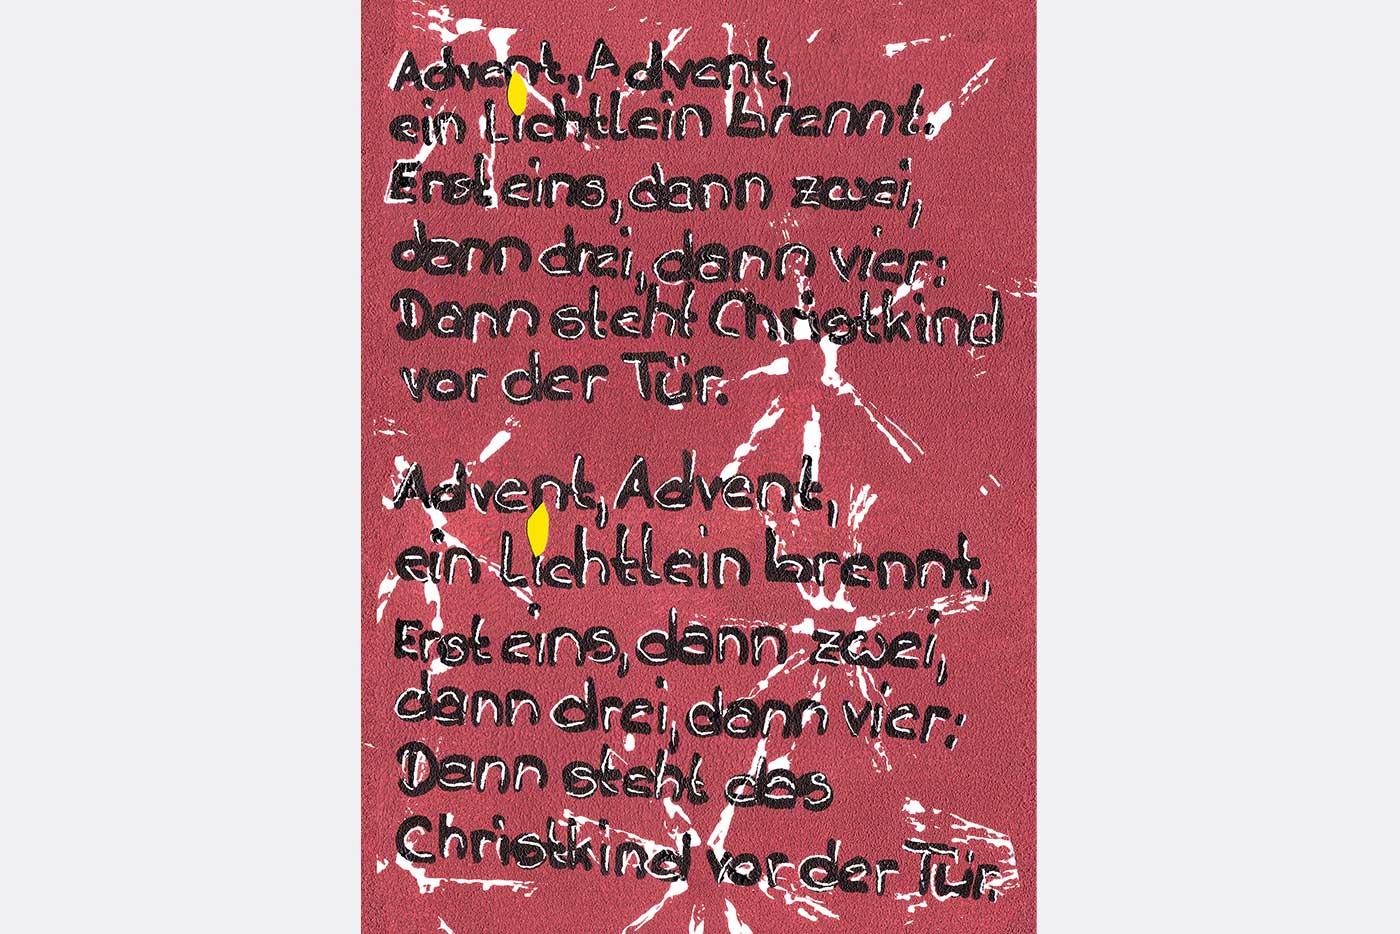 Advent, Advent,
ein Lichtlein brennt.
Erst eins, dann zwei,
dann drei, dann vier:
Dann steht Christkind
vor der Tür.
Advent, Advent,
ein Lichtlein brennt,
Erst eins, dann zwei,
dann drei, dann vier:
Dann steht das
Christkind vor der Tür.